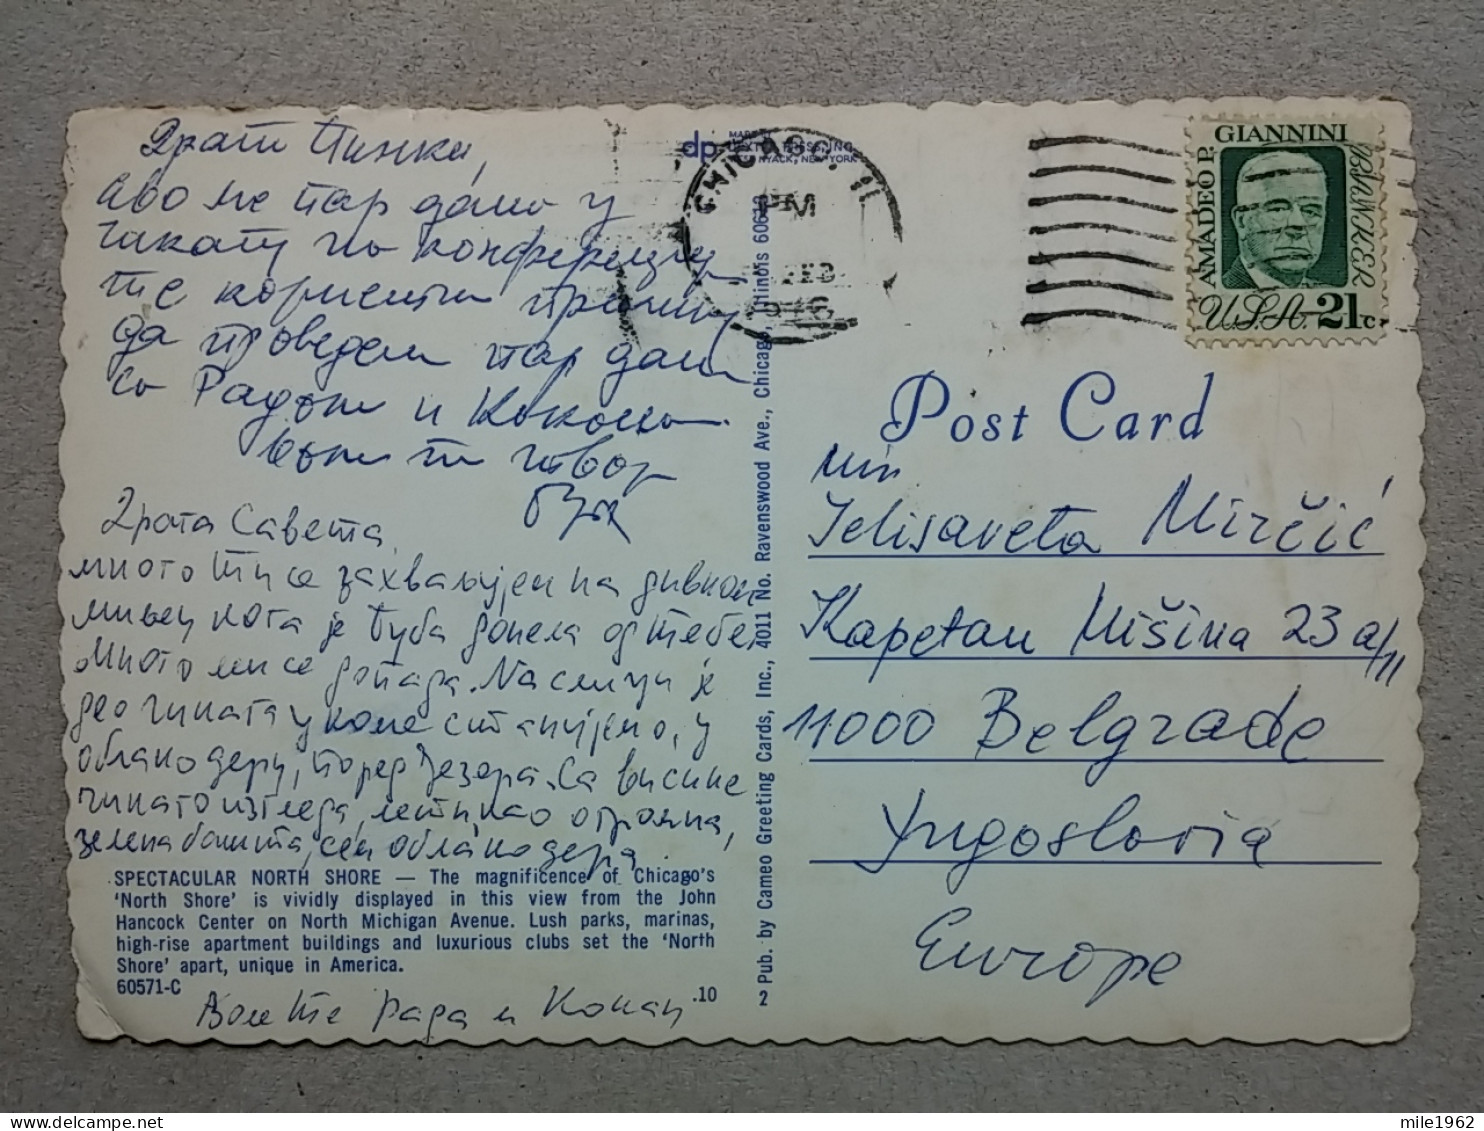 Драги Пинки,
ево ме пар дана у
Чикагу на конференцији
те користим прилику
да проведем пар дана
са Радом и Коканом.
Воли те твој
Драга Савета,
много ти се захваљујем на дивном
миљеу кога је Буба донела од тебе.
Много ми се допада. На слици је
део Чикага у коме станујемо, у
облакодеру, поред језера. Са висине
Чикаго изгледа, лети као огромна,
зелена башта, са облакодера
SPECTACULAR NORTH SHORE — The magnificence of Chicago's
'North Shore' is vividly displayed in this view from the John
Hancock Center on North Michigan Avenue. Lush parks, marinas,
high-rise apartment buildings and luxurious clubs set the 'North
Shore' apart, unique in America.
60571-C
.10
Воле те Рада и Кокан
2 Pub. by Cameo Greeting Cards, Inc., 4011 No. Ravenswood Ave., Chicago, Illinois 60613
dp
NYACK, NEW YORK
CHICAGO, IL
PM
FEB
AMADEO P.
GIANNINI
BANKER
U.S.A. 21c
Post Card
Jelisaveta Mirčić
Kapetan Mišina 23a/II
11000 Belgrade
Yugoslavia
Europe
mile1962